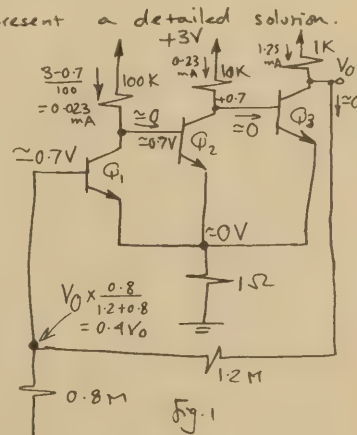 resent a detailed solution.
+3V
3-0.7
100
= 0.023 mA
100K
0.23 mA
10K
1.25 mA
1K
V₀
≃0
≃0.7V
+0.7
≃0
≃0
Q₁
≃0.7V
Q₂
Q₃
≃0V
1Ω
V₀ x 0.8
1.2+0.8
= 0.4V₀
1.2M
0.8M
Fig.1